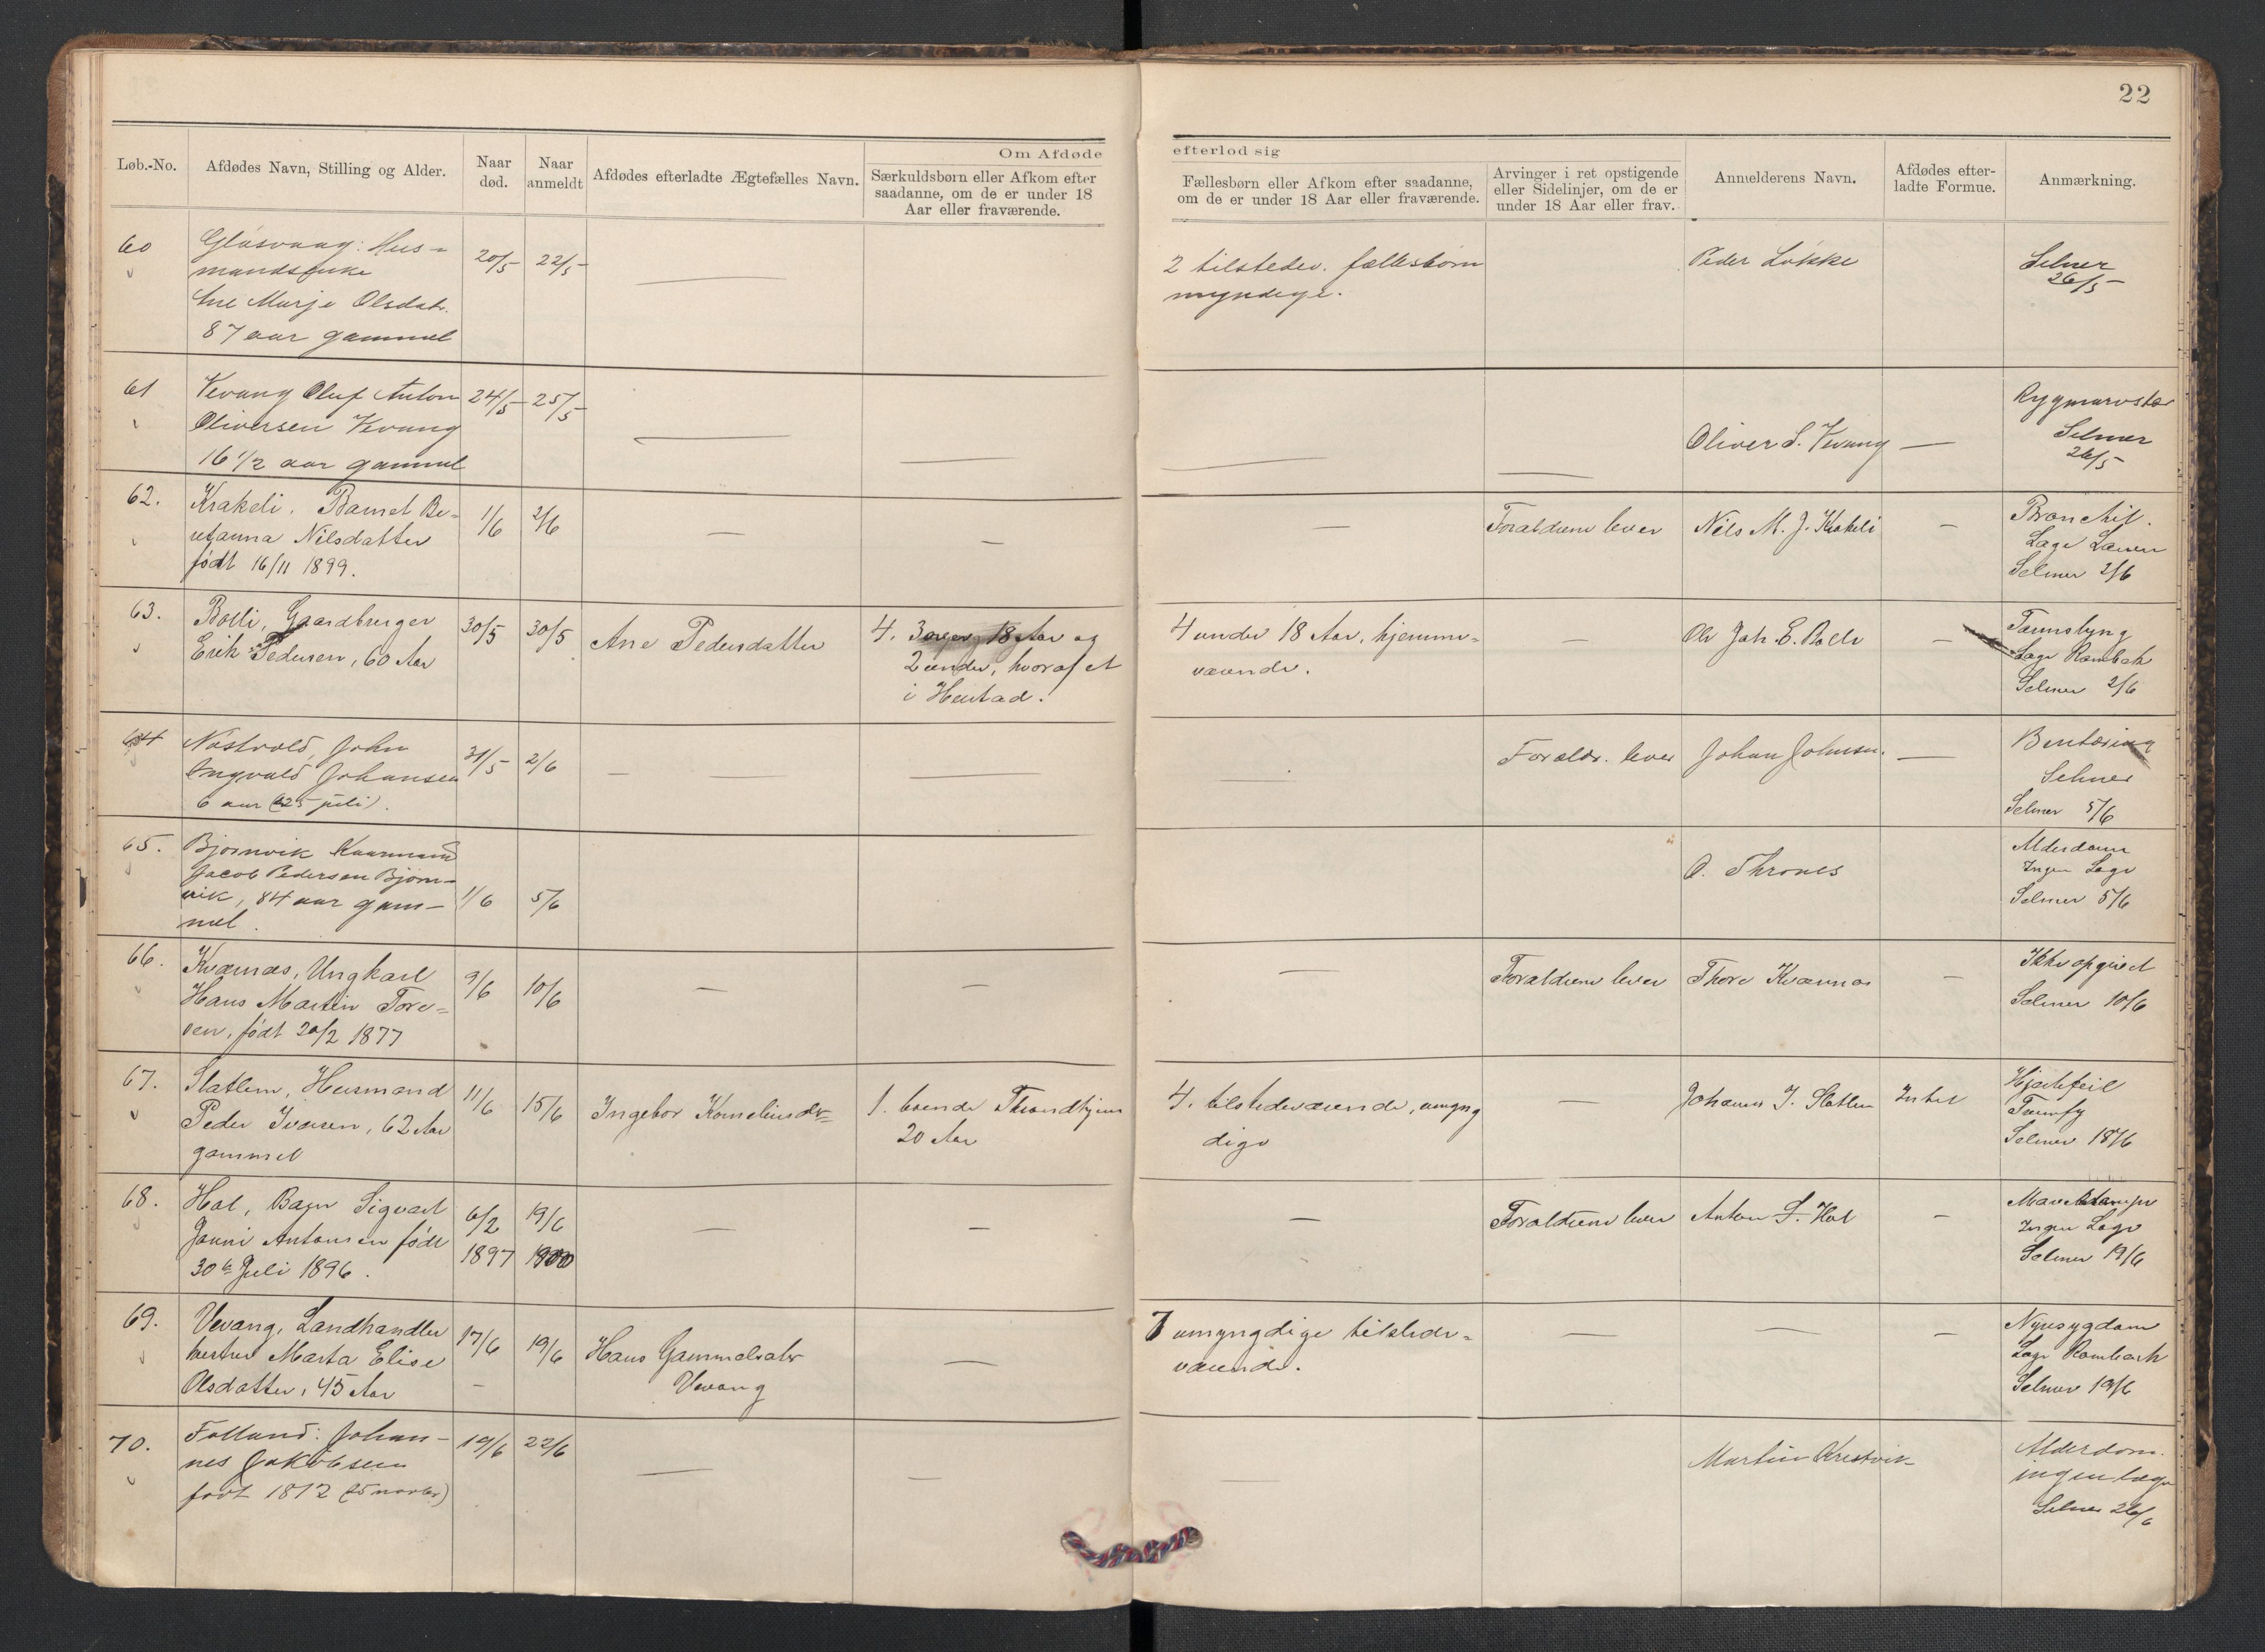 22
Om Afdøde efterlod sig
Løb.-No.
Afdødes Navn, Stilling og Alder.
Naar død.
Naar anmeldt
Afdødes efterladte Ægtefælles Navn.
Særkuldsbørn eller Afkom efter
saadanne, om de er under 18
Aar eller fraværende.
Fællesbørn eller Afkom efter saadanne,
om de er under 18 Aar eller fraværende.
Arvinger i ret opstigende
eller Sidelinjer, om de er
under 18 Aar eller frav.
Anmelderens Navn.
Afdødes efter-
ladte Formue.
Anmærkning.
60
Gløsvaag: Hus-
mandsenke
Ane Marje Olsdatr.
87 aar gammel
20/5
22/5
—
2 tilstedev. fællesbørn
myndige.
Peder Løkke
Selmer
26/5
61
Vevang Oluf Anton
Oliversen Vevang
16 1/2 aar gammel
24/5
25/5
—
—
—
—
Oliver S. Vevang
—
Rygmarvstær
Selmer
26/5
62.
Krakeli. Barnet Be-
utanna Nilsdatter
født 16/11 1899.
1/6
2/6
—
—
—
Forældrene lever
Nils M. J. Krakeli
—
Bronchit.
Læge
Selmer 2/6
63.
Bolli, Gaardbruger
Erik Pedersen, 60 Aar
30/5
30/5
Ane Pedersdatter
4. 3 over 18 Aar og
2 under, hvoraf et
i Hustad.
4 under 18 Aar, hjemme-
værende.
—
Ole Joh. E. Bolli
—
Læge Rambech
Selmer 2/6
64
Nåstvold, John
Ingvald Johansen
6 aar (25 juli).
31/5
2/6
— —
—
—
Forældr. lever
Johan Johnsen.
—
Selmer
Selmer 5/6
65.
Bjørnvik Kaarmand
Jacob Pedersen Bjørn-
vik, 84 aar gam-
mel.
1/6
5/6
O. Thrones
Alderdom
Ingen Læge
Selmer 5/6
66.
Kvernæs, Ungkarl
Hans Martin Tore-
sen, født 20/2 1877
9/6
10/6
—
—
—
Forældrene lever
Thore Kvernæs
—
Ikke opgivet
Selmer 10/6
67.
Slatlem, Husmand
Peder Iversen, 62 Aar
gammel
11/6
15/6
Ingebor Korneliusdr
1. boende Throndhjem
20 Aar
4. tilstedeværende, umyng
dige
—
Johannes I. Slatlem
Intet
Hjertefeil
Selmer 18/6
68.
Hol, Barn Sigvart
Janni Antonsen født
30te Juli 1896.
6/2
1897
19/6
1900
—
—
—
Forældrene lever
Anton S. Hol
—
Ingen Læge
Selmer 19/6
69.
Vevang, Landhandler
hustru Marta Elise
Olsdatter, 45 Aar
17/6
—
19/6
Hans Gammelsøter
Vevang
—
7 umyngdige tilstede-
værende.
—
—
—
Nyresygdom
Læge Rambech
Selmer 19/6
70.
Folland: Johan-
nes Jakobsen
født 1812 (25 novbr)
19/6
22/6
—
—
—
Martin Orestvik
Alderdom.
ingen læge
Selmer 26/6